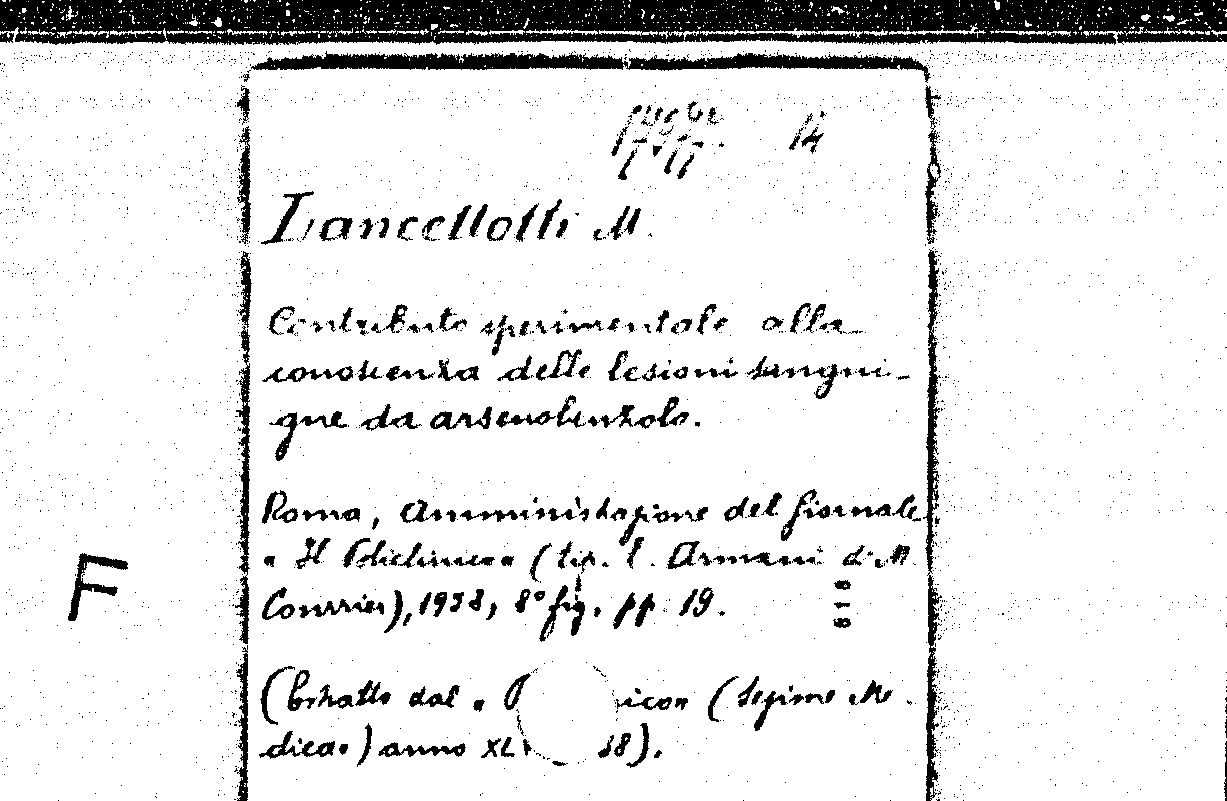 14
Lancellotti M.
Contributo sperimentale alla
conoscenza delle lesioni sangui-
gne da arsenobenzolo.
Roma, Amministrazione del Giornale
" Il Policlinico" (tip. E. Armani di M.
Courrier), 1938, 8° fig. pp. 19.
F
(Estratto dal " (Sezione Me
dica") anno